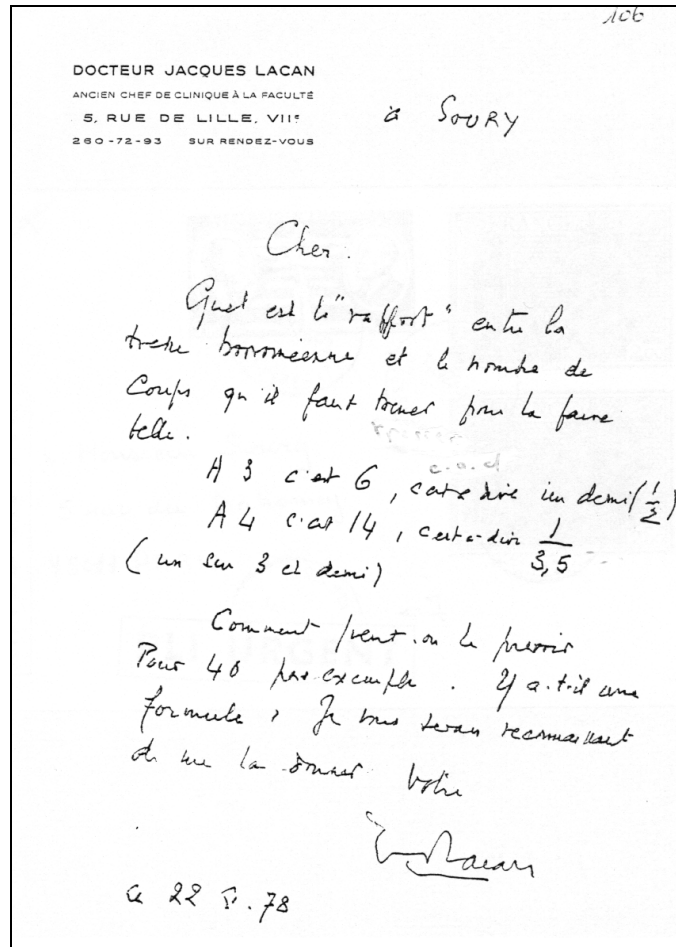 106
DOCTEUR JACQUES LACAN
ANCIEN CHEF DE CLINIQUE À LA FACULTÉ
5, RUE DE LILLE, VIIᵉ
260-72-93 SUR RENDEZ-VOUS
à SOURY
Cher.
Quel est le "rapport" entre la
tresse borroméenne et le nombre de
Coups qu'il faut tresser pour la faire
telle.
c.a.d
A 3 c'est 6, c'est à dire un demi (1/2)
A 4 c'est 14, c'est-a-dire 1/3,5
(un sur 3 et demi)
Comment peut-on le prévoir
Pour 40 par exemple. Y a-t-il une
formule, Je vous serais reconnaissant
de me la donner Votre
Lacan
ce 22 78